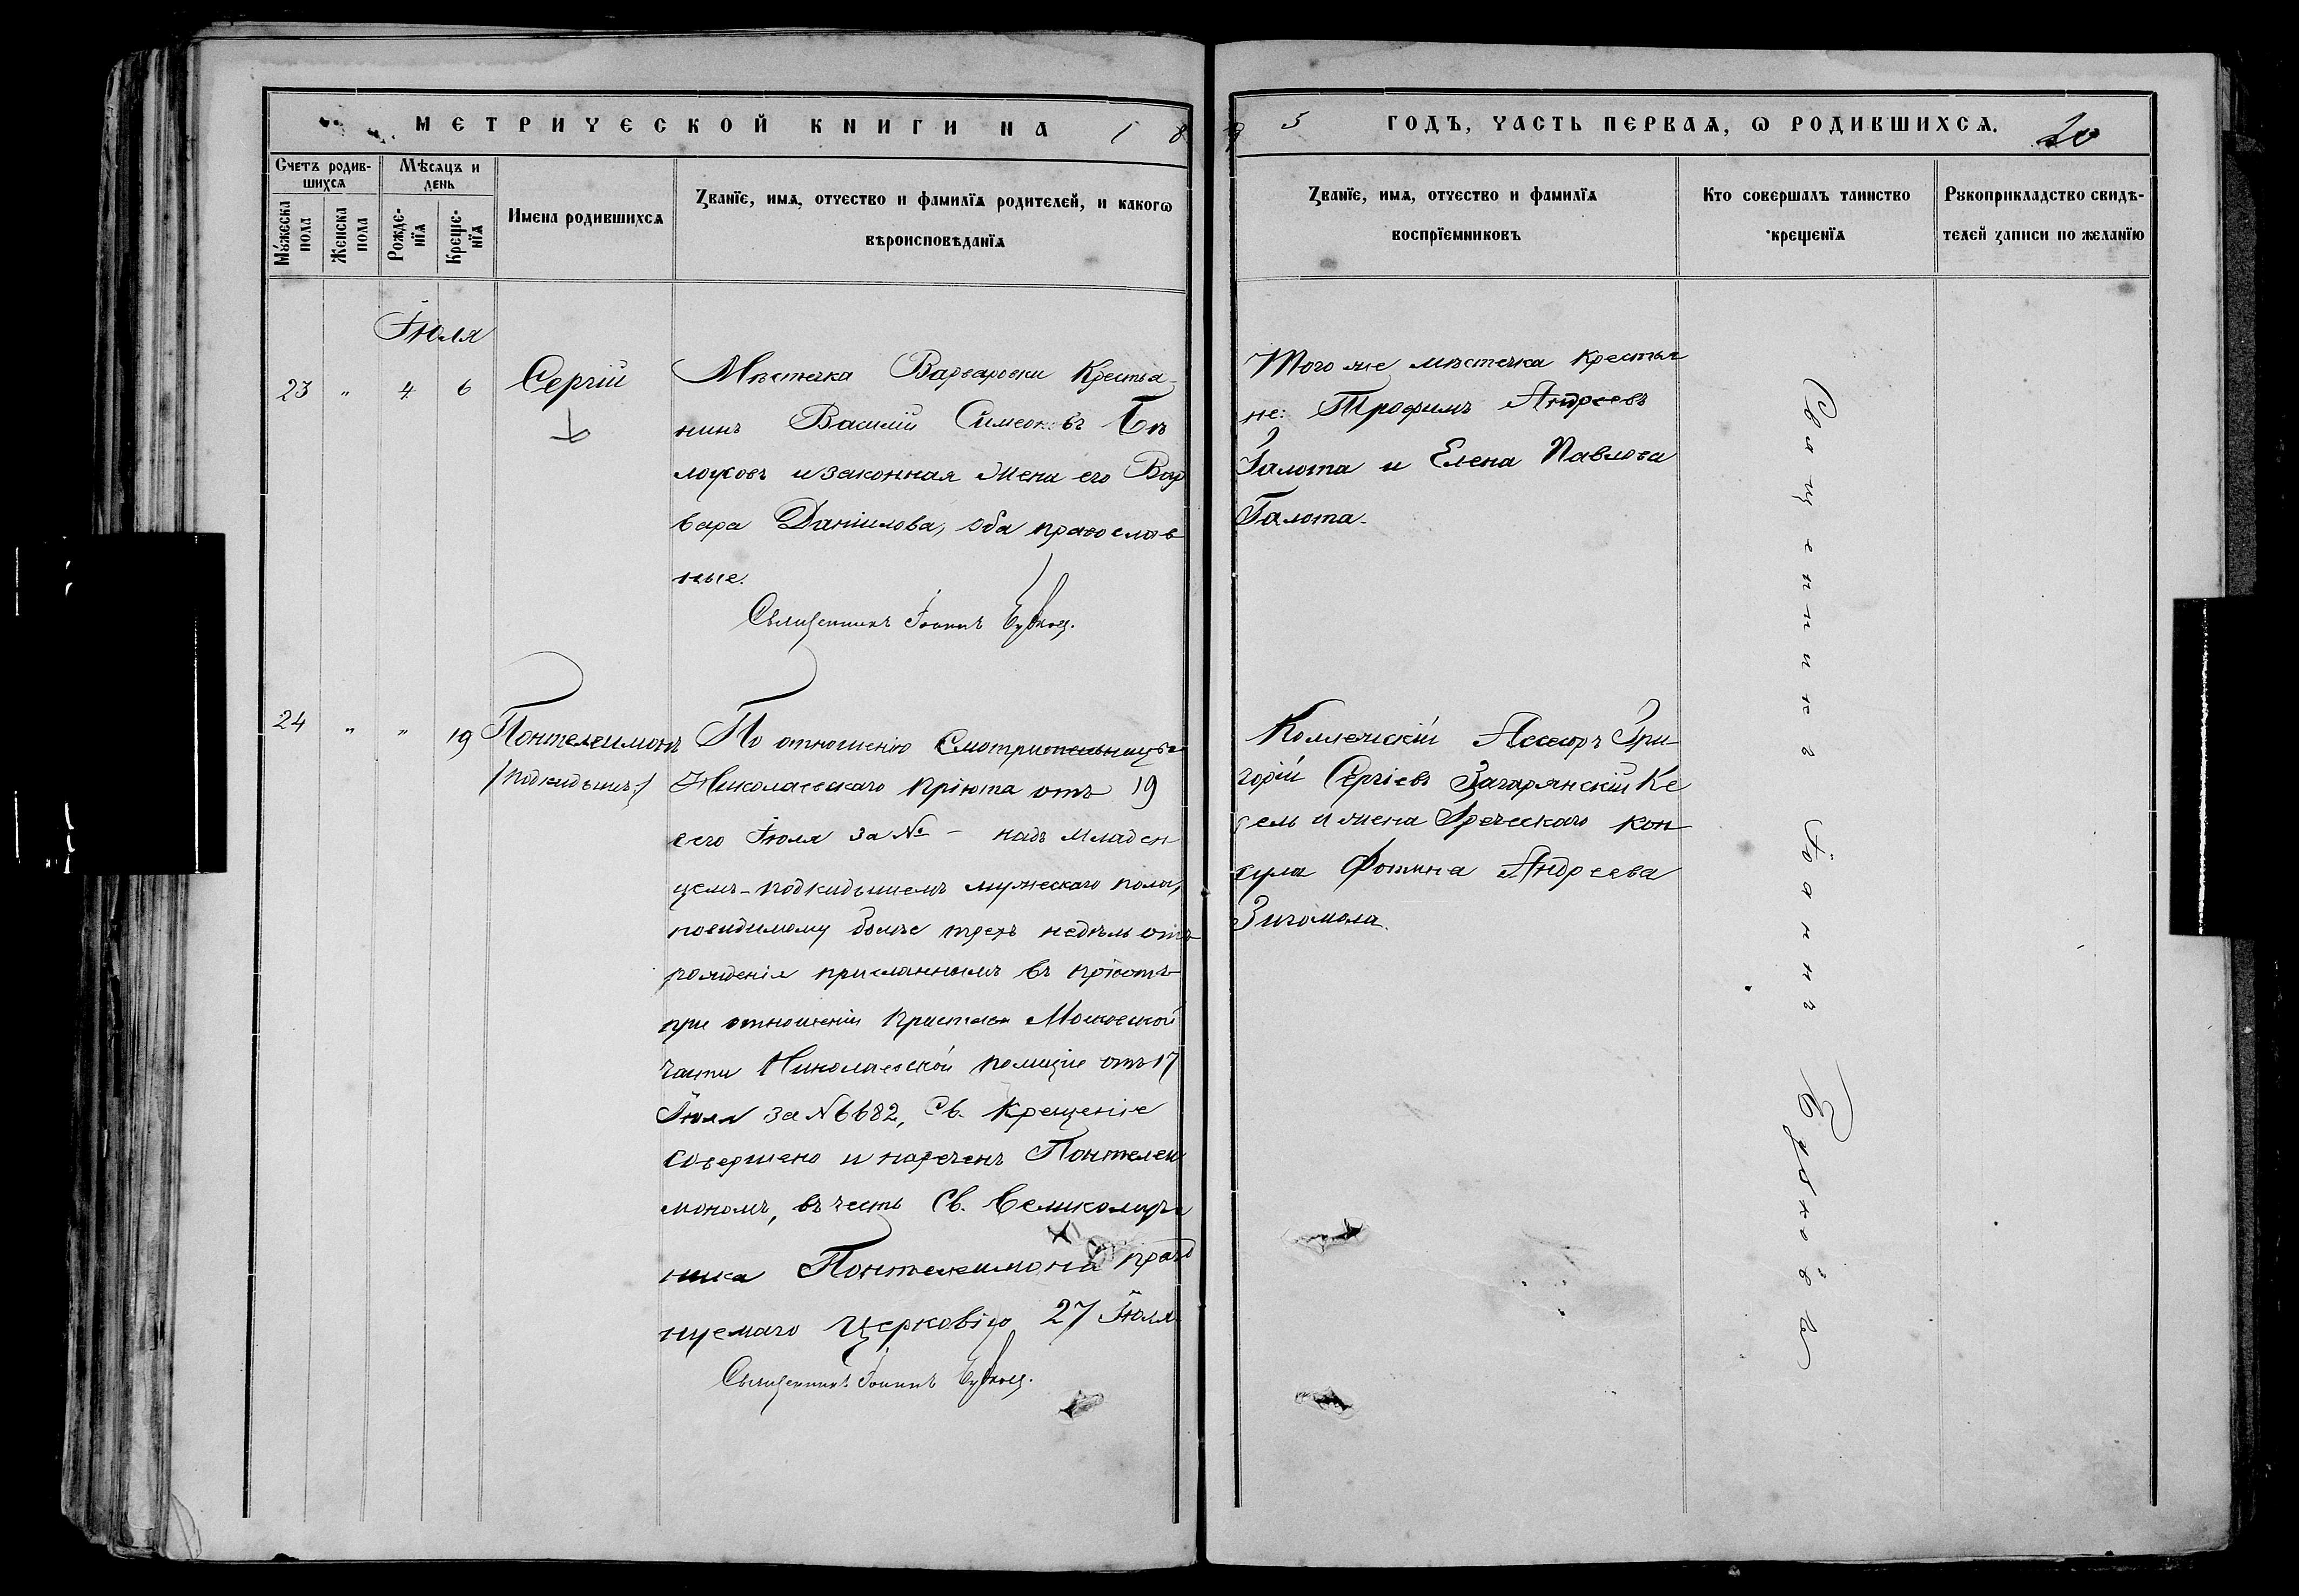 МЕТРИЧЕСКОЙ КНИГИ НА 18
95 ГОДЪ, ЧАСТЬ ПЕРВАѦ, Ѡ РОДИВШИХСѦ. 20
Счетъ родив-
шихсѧ
Мѣсѧцъ и
день
Мꙋжеска
пола
Женска
пола
Рожде-
нїѧ
Креще-
нїѧ
Имена родившихсѧ
Званїе, имѧ, отчество и фамилїѧ родителей, и какогѡ
вѣроисповѣданїѧ
Званїе, имѧ, отчество и фамилїѧ
воспрїемниковъ
Кто совершалъ таинство
крещенїѧ
Рꙋкоприкладство свидѣ-
телей записи по желанїю
Іюля
23 " 4 6 Сергій
Мѣстечка Варваровки Крестья-
нинъ Василій Симеоновъ Бѣ
лоусовъ и законная жена его Вар
вара Даніилова, оба православ
ные.
Священникъ Іоаннъ
Того же мѣстечка крестья
не: Трофимъ Андреевъ
Галота и Елена Павлова
Галота.
24 " " 19 Понтелеимонъ
/подкидышъ/
По отношенію Смотрительницы
Николаевскаго пріюта отъ 19
сего Іюля за № - надъ младен
цемъ-подкидышемъ мужескаго пола,
повидимому болѣе трехъ недѣль отъ
рожденія присланнымъ въ пріютъ
при отношеніи Пристава Московской
части Николаевской полиціи отъ 17
Іюля за №6682, Св. Крещеніе
совершено и нареченъ Понтелеи
мономъ, въ честь Св. Великомуче
ника Понтелеимона празд
нуемаго Церковію 27 Іюля
Священникъ Іоаннъ
Коллежскій Ассесоръ Гри-
горій Сергіевъ
и жена Греческаго кон
сула Фотина Андреева
Зигомола.
Священникъ Іоаннъ